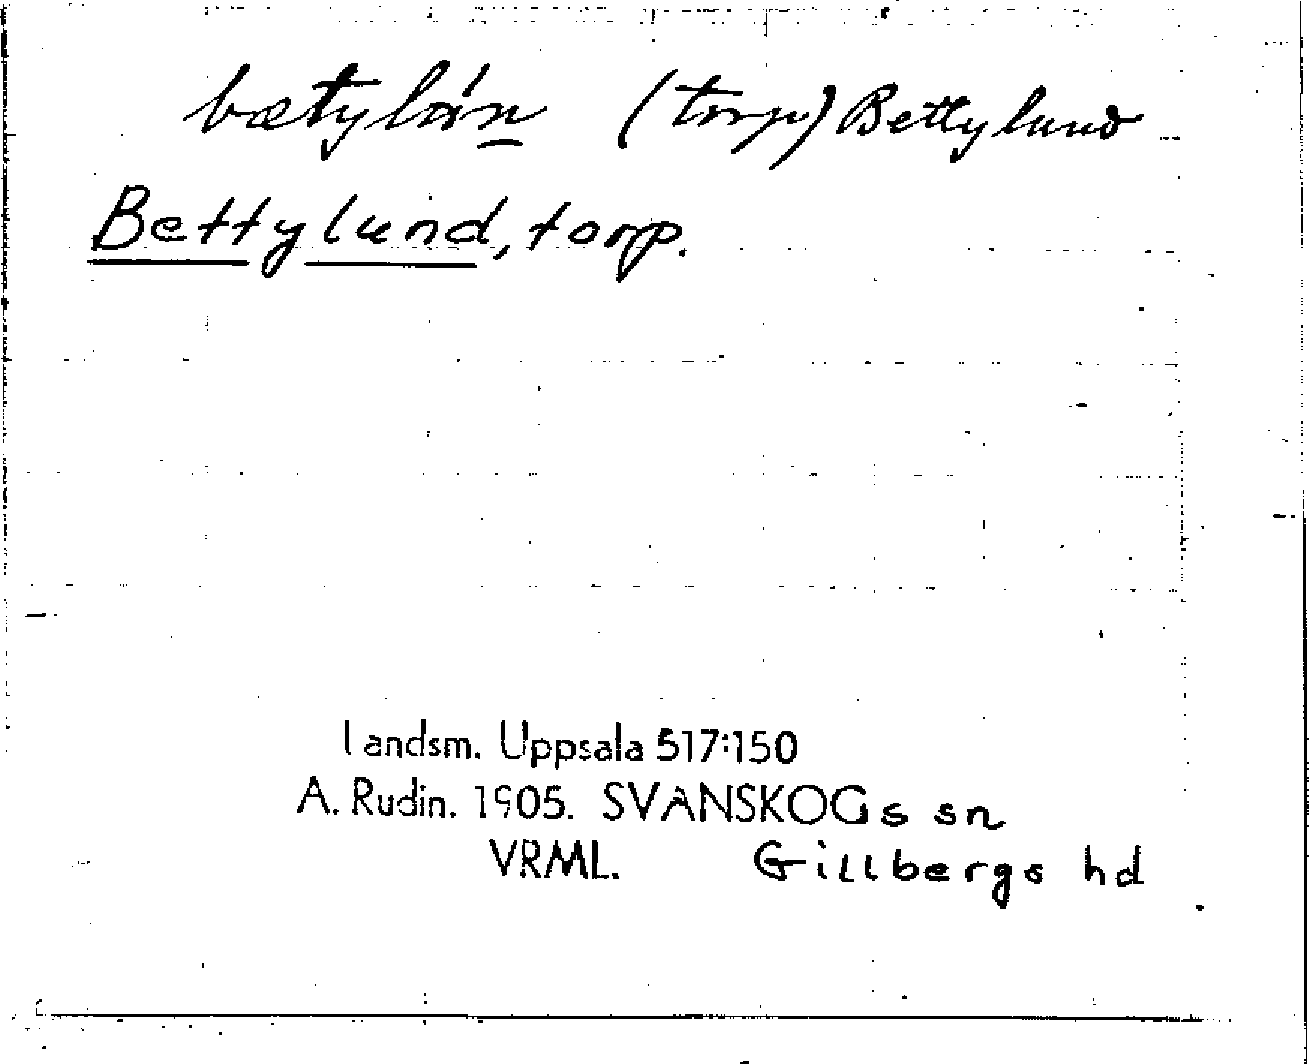 (torp) Bettylund
Bettylund, torp.
Landsm. Uppsala 517:150
A. Rudin. 1905. SVANSKOGs sn
VRML. Gillbergs hd